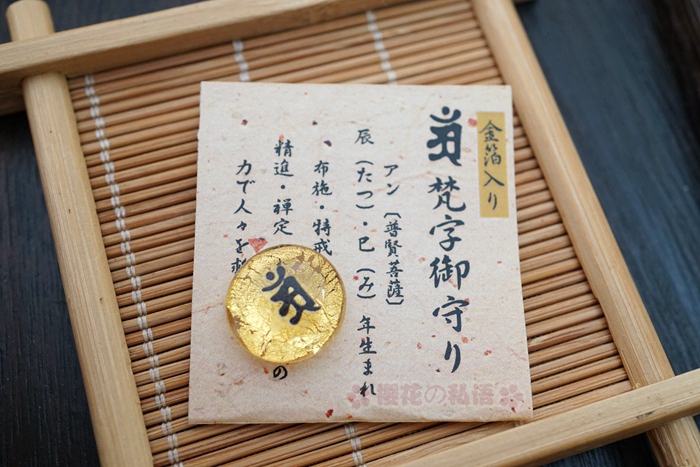 金箔入り
梵字御守り
アン〔普賢菩薩〕
辰(たつ)・巳(み)年生まれ
布施・持戒
精進・禅定
力で人々を救
の
櫻花の私语